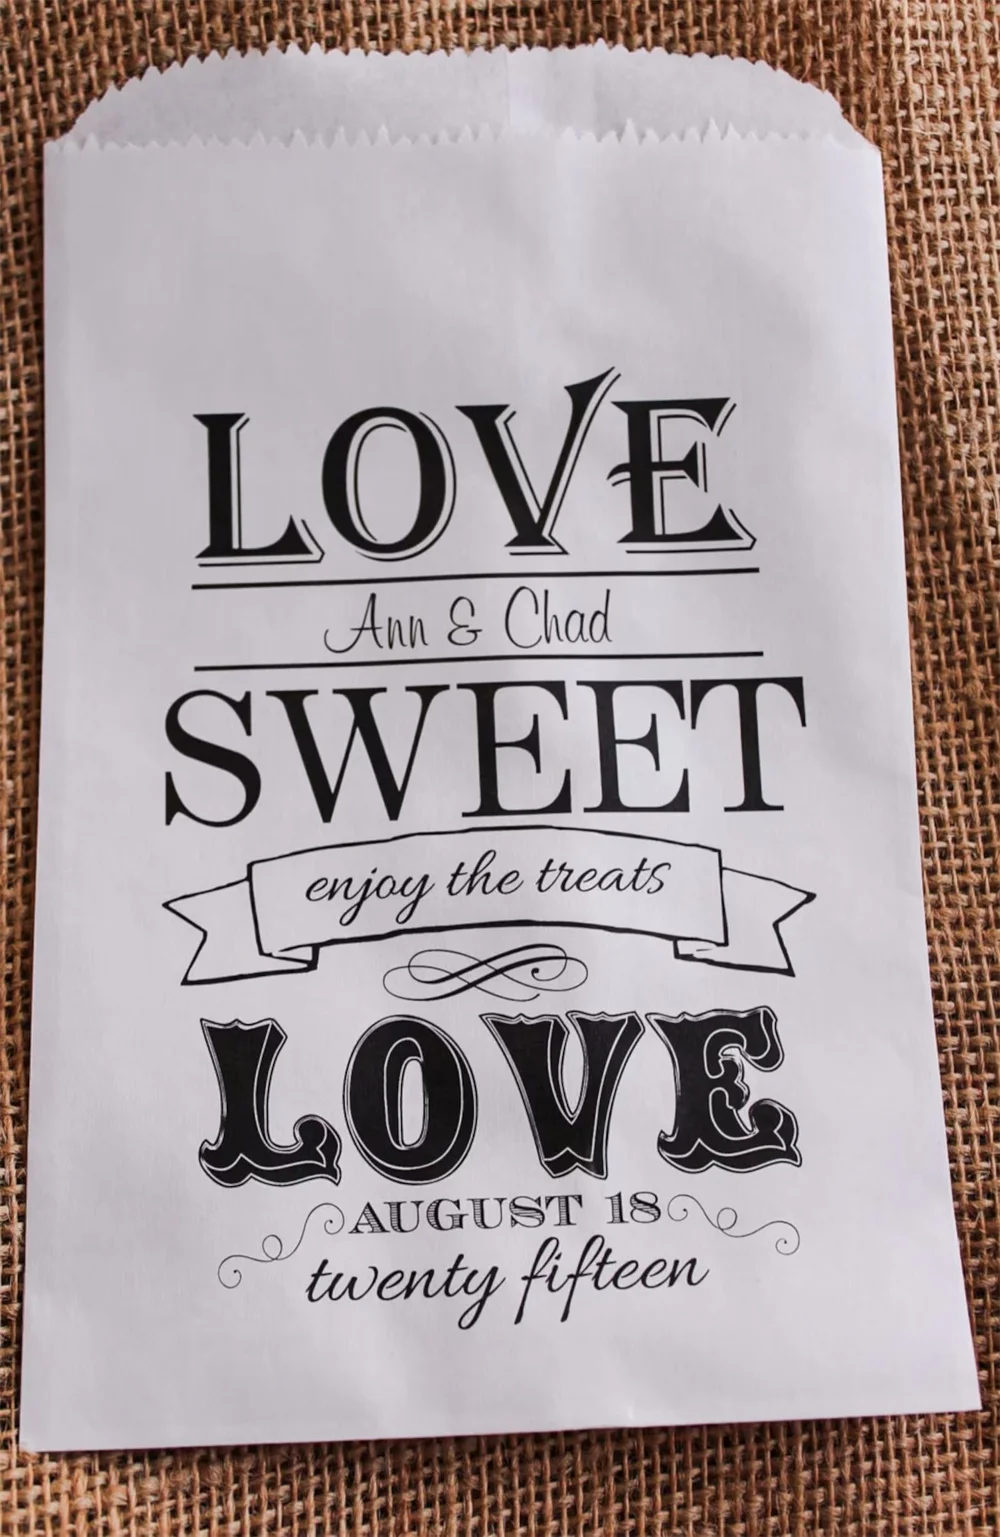 LOVE
Ann & Chad
SWEET
enjoy the treats
LOVE
AUGUST 18
twenty fifteen